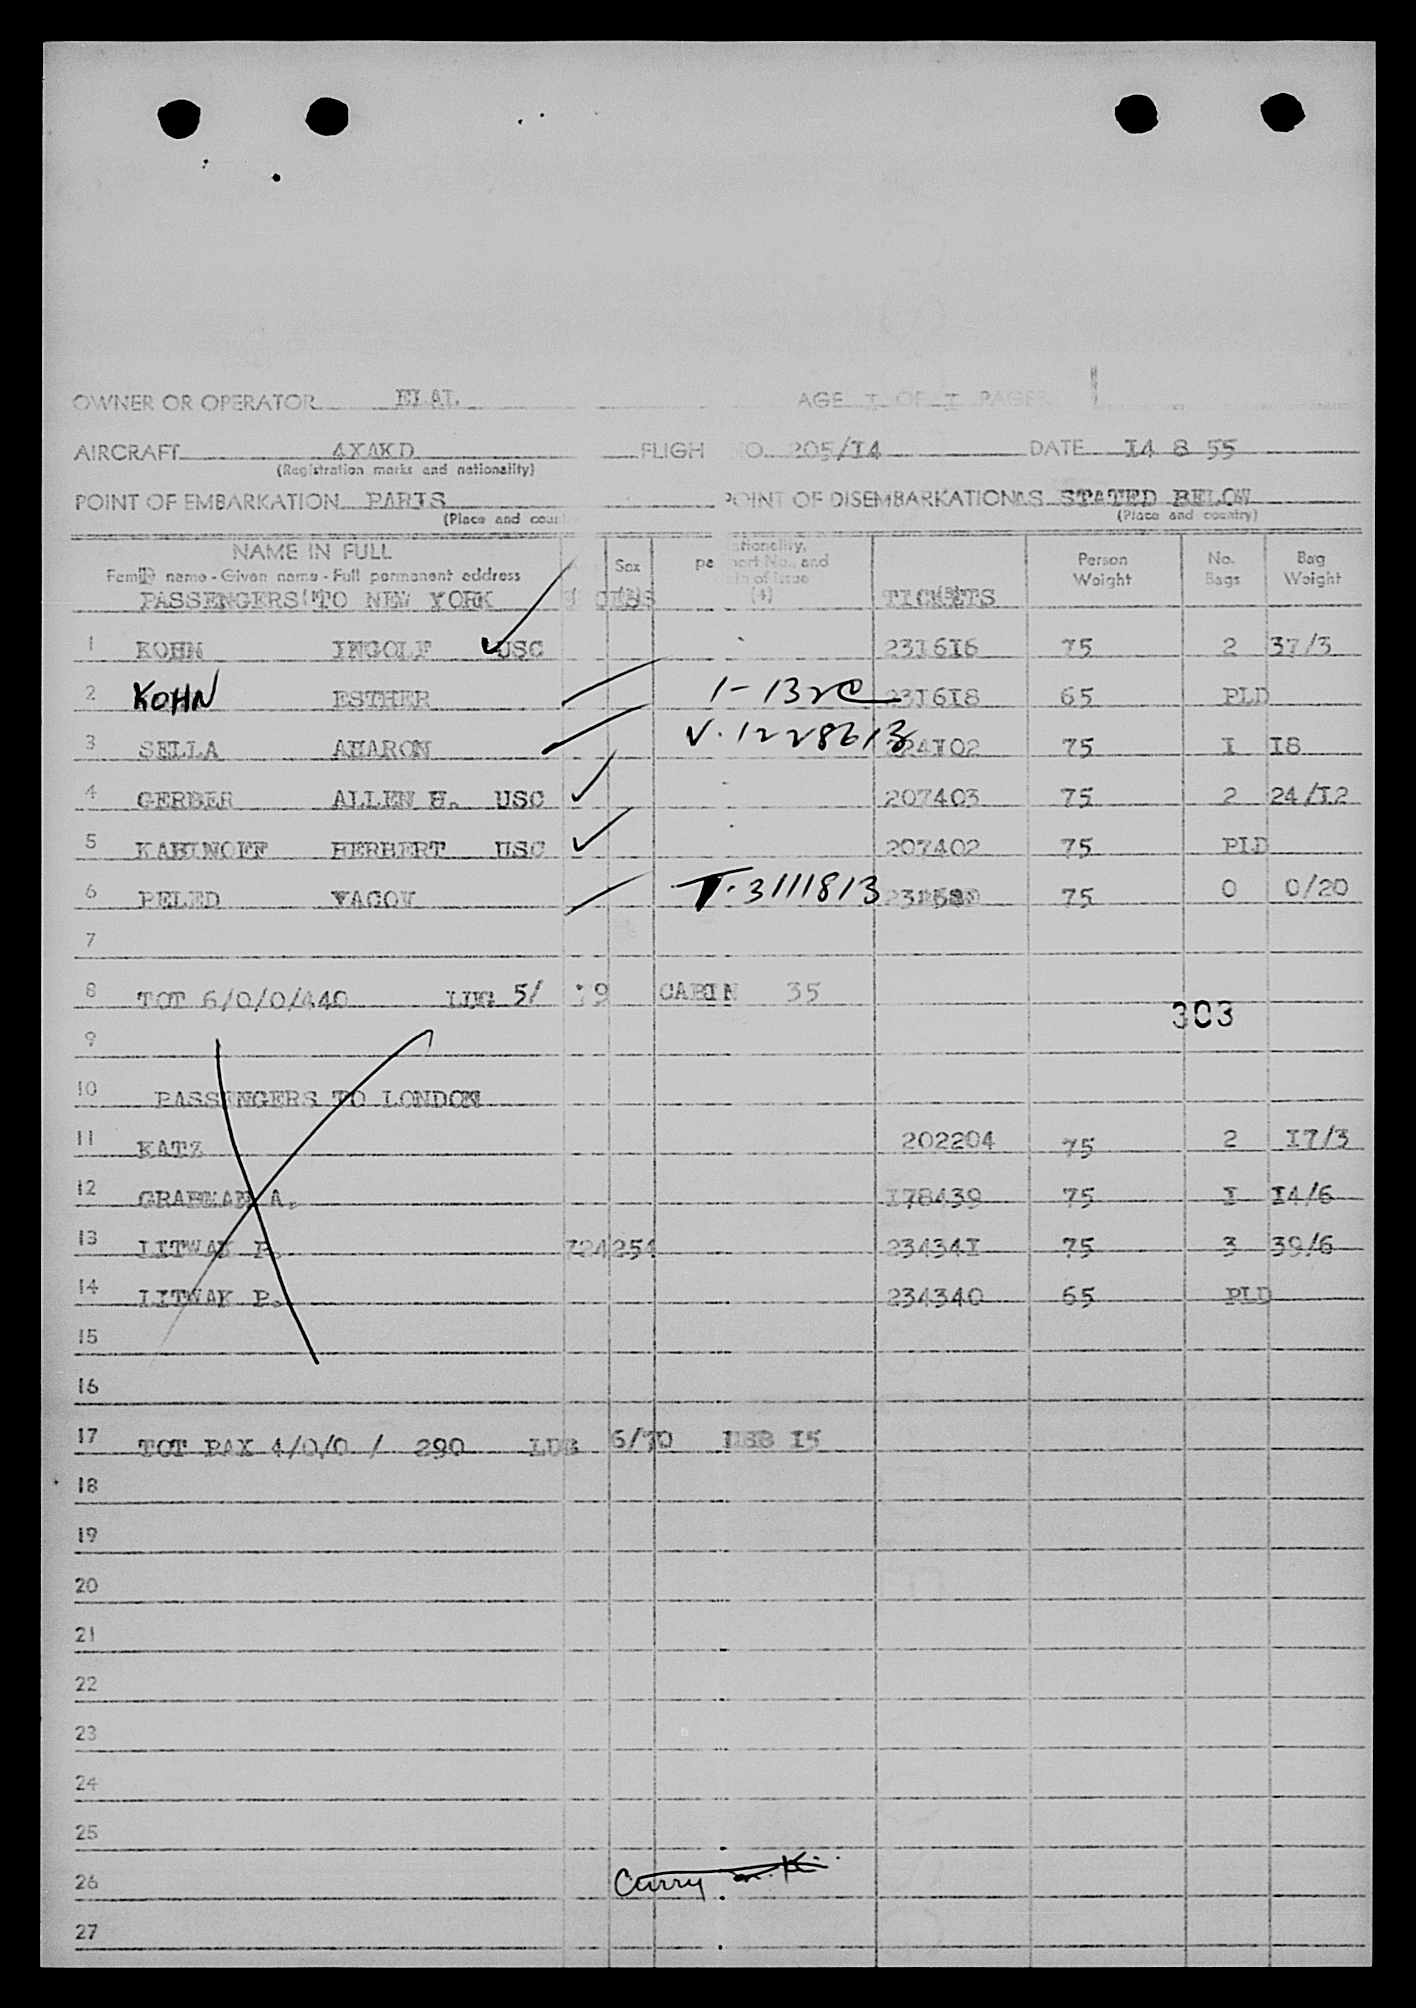 OWNER OR OPERATOR ELAL AGE I OF I PAGES
AIRCRAFT 4XAKD FLIGH NO. 205/I4 DATE I4 8 55
(Registration marks and nationality)
POINT OF EMBARKATION PARIS POINT OF DISEMBARKATION AS STATED BELOW
(Place and coun (Place and country)
NAME IN FULL Sex tionality, Person No. Bag
Family name - Given name - Full permanent address port No., and Weight Bags Weight
of issue
PASSENGERS TO NEW YORK (4) TICKETS
1 KOHN INGOLF USC 23I6I6 75 2 37/3
2 KOHN ESTHER 1-132C 23I6I8 65 PLD
3 SELLA AHARON V.1228613 75 I I8
4 GERBER ALLEN H. USC 207403 75 2 24/I2
5 KABINOFF HERBERT USC 207402 75 PLD
6 PELED YACOV T.3111813 75 0 0/20
7
8 TOT 6/0/0/440 LUG 5/ 79 CABIN 35
303
9
10 PASSENGERS TO LONDON
11 KATZ 202204 75 2 I7/3
12 GRABMAN A. I78439 75 I I4/6
13 LITWAK P. 724254 23434I 75 3 39/6
14 LITWAK P. 234340 65 PLD
15
16
17 TOT PAX 4/0/0 / 290 6/70 I5
18
19
20
21
22
23
24
25
26 Curry
27